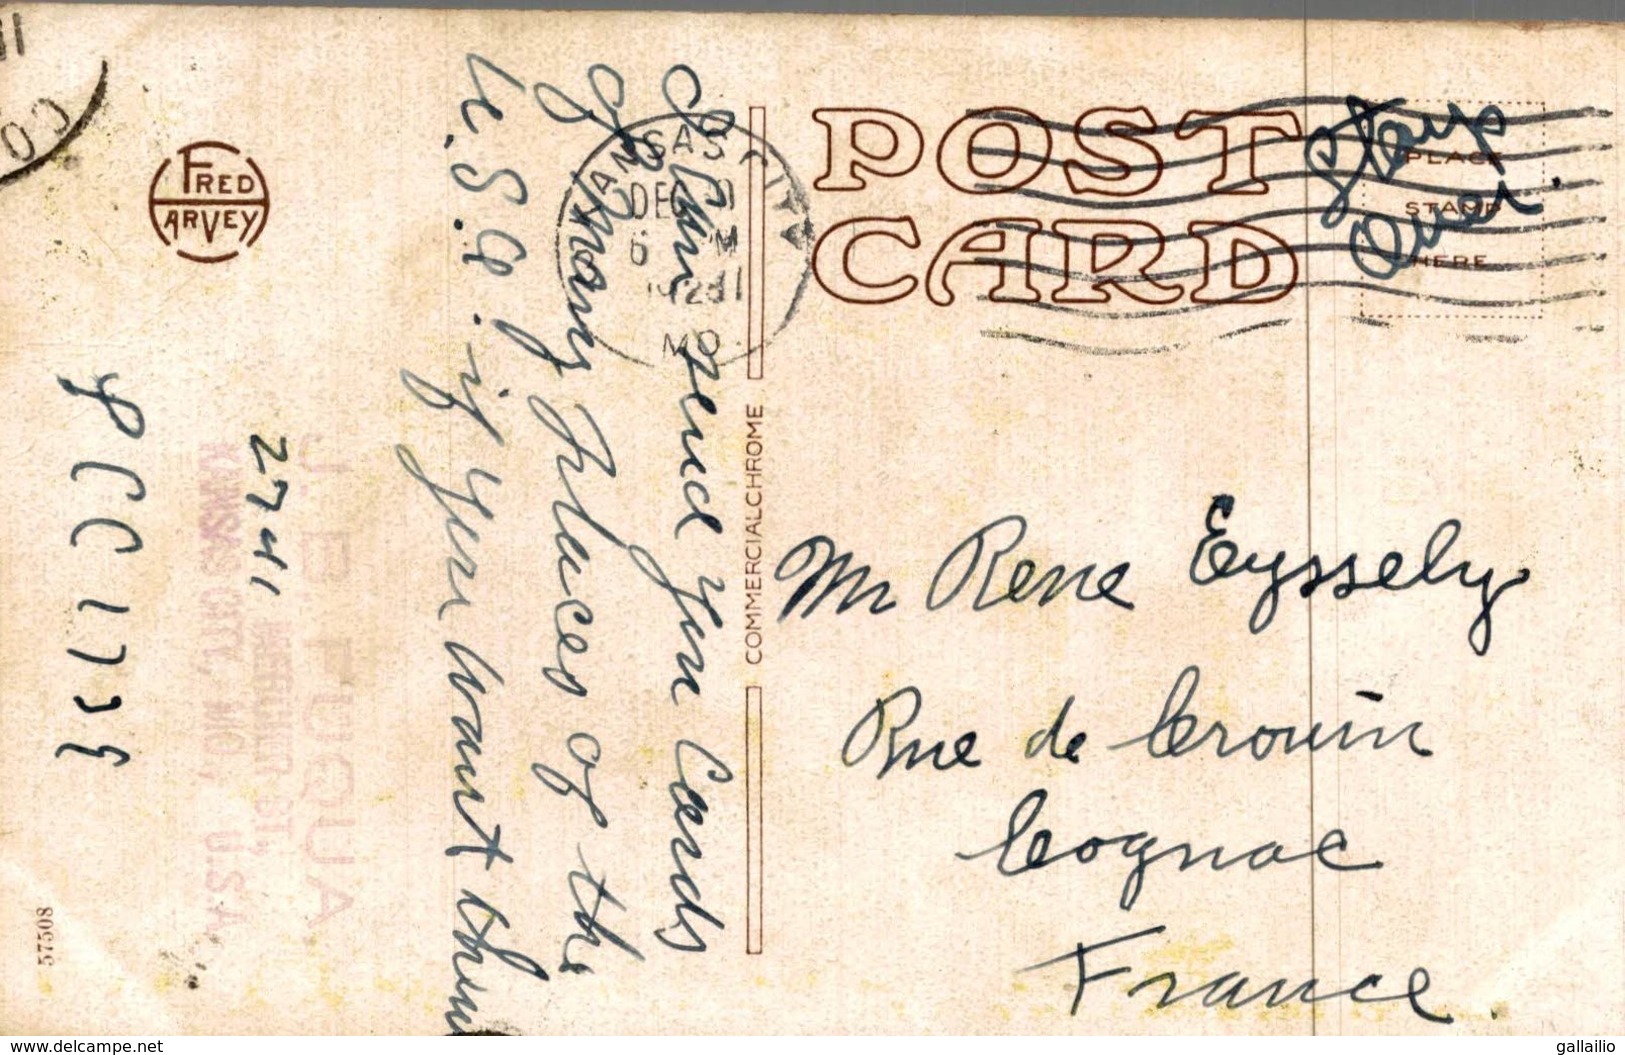 POST
CARD
Stamp
Over
PLACE
STAMP
HERE
Mr Rene Eyssely
Rue de Crouin
Cognac
France
I Can send you Cards
of many Places of the
U.S.A. if you want them
KANSAS CITY
DEC
6 M
MO
FRED
HARVEY
COMMERCIALCHROME
2741
J. E. FUQUA
KANSAS CITY, MO., U.S.A.
57508
www.delcampe.net
gallailio